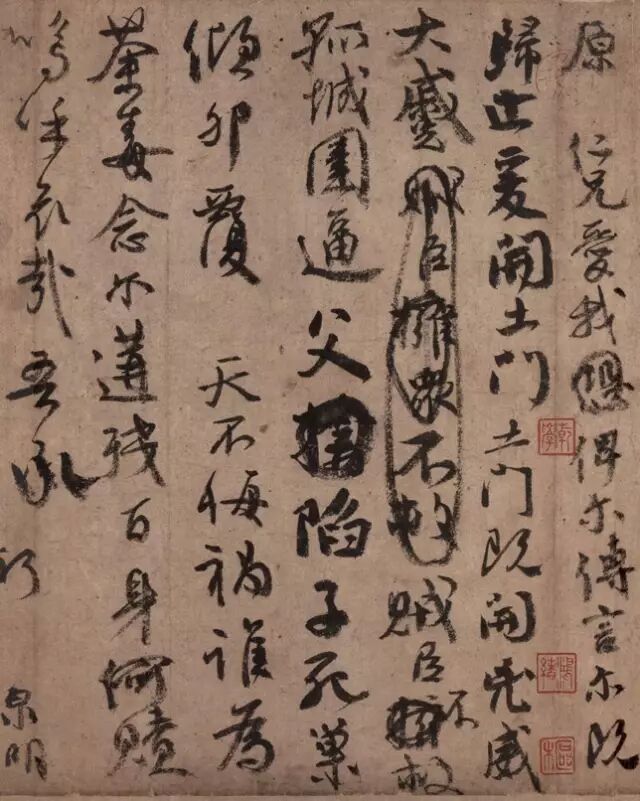 原 仁兄愛我俾尔傳言尔既
歸止爰開土門土門既開凶威
大蹙賊臣擁眾不救賊臣不救
孤城圍逼父陷子死巢
傾卵覆 天不悔禍誰為
荼毒念尔遘殘百身何贖
嗚呼哀哉吾承
泉明